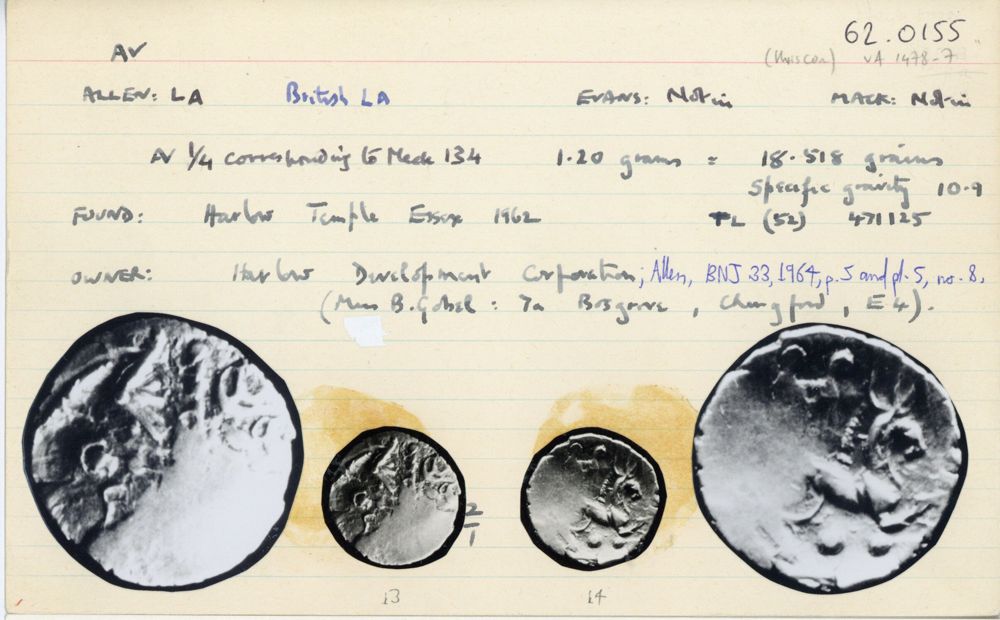 62.0155
AV
(Huiscon) VA 1478-7
ALLEN: LA British LA EVANS: Not in MACK: Not in
AV 1/4 corresponding to Mack 134 1.20 grams = 18.518 grains
Specific gravity 10.9
FOUND: Harlow Temple Essex 1962 TL (52) 471125
OWNER: Harlow Development Corporation; Allen, BNJ 33, 1964, p.5 and pl.5, no.8.
(Miss B. Gobel: 7a Bosgrove, Chingford, E4).
2/1
13 14